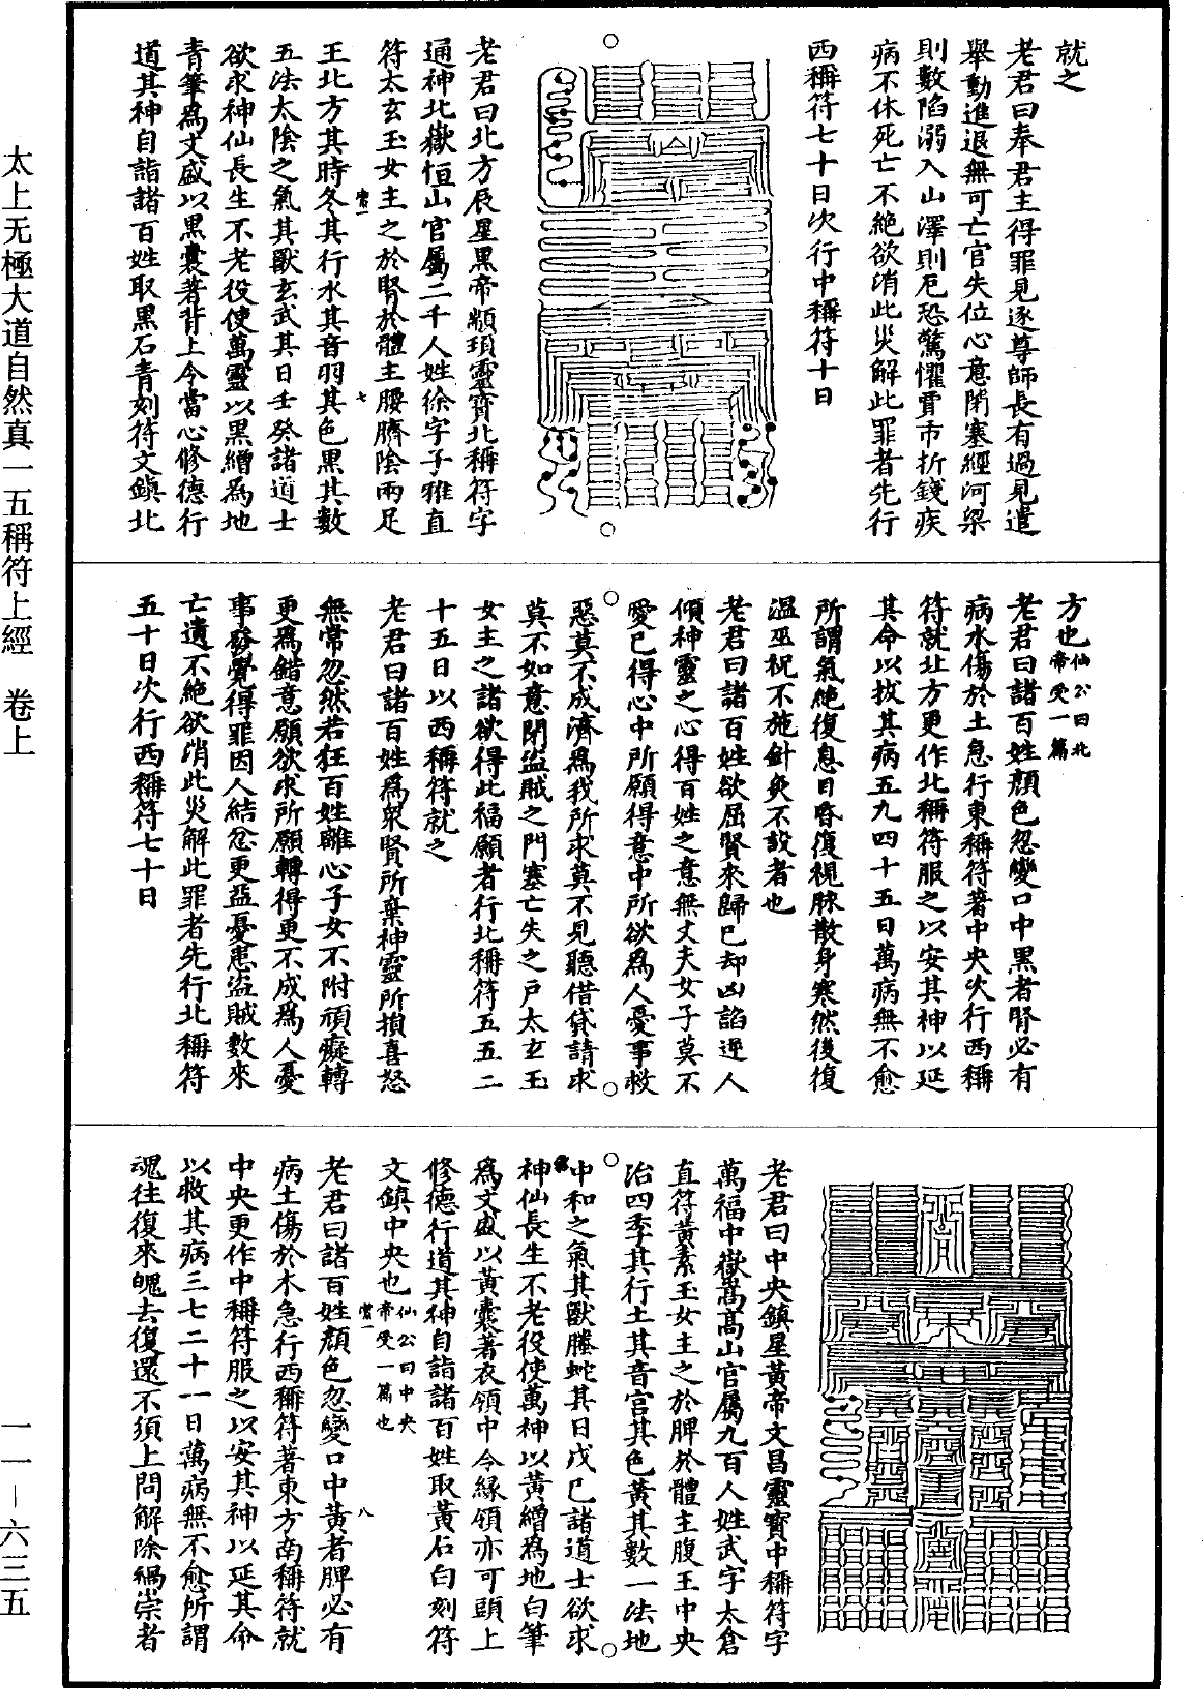 就之
老君曰奉君主得罪見逐尊師長有過見遣
舉動進退無可亡官失位心意閉塞經河梁
則數陷溺入山澤則厄恐驚懼賈市折錢疾
病不休死亡不絶欲消此災解此罪者先行
西稱符七十日次行中稱符十日
老君曰北方辰星黑帝顓頊靈寳北稱符字
通神北嶽恒山官屬二千人姓徐字子雅直
符太玄玉女主之於腎於體主腰臍陰兩足
王北方其時冬其行水其音羽其色黑其數
五法太陰之氣其獸玄武其日壬癸諸道士
欲求神仙長生不老役使萬靈以黑繒爲地
青筆爲文盛以黑囊著背上令當心修德行
道其神自詣諸百姓取黑石青刻符文鎮北
方也仙公曰北帝受一篇
老君曰諸百姓顔色忽變口中黑者腎必有
病水傷於土急行東稱符著中央次行西稱
符就北方更作北稱符服之以安其神以延
其命以拔其病五九四十五日萬病無不愈
所謂氣絶復息目昏復視脉散身寒然後復
温巫祝不施針灸不設者也
老君曰諸百姓欲屈賢來歸已却凶諂迎人
傾神靈之心得百姓之意無丈夫女子莫不
愛已得心中所願得意中所欲爲人憂事救
惡莫不成濟爲我所求莫不見聽借貸請求
莫不如意閉盜賊之門塞亡失之戸太玄玉
女主之諸欲得此福願者行北稱符五五二
十五日以西稱符就之
老君曰諸百姓爲衆賢所棄神靈所損喜怒
無常忽然若狂百姓離心子女不附頑癡轉
更爲錯意願欲求所願轉得更不成爲人憂
事發覺得罪因人結忿更益憂患盜賊數來
亡遺不絶欲消此災解此罪者先行北稱符
五十日次行西稱符七十日
老君曰中央鎮星黃帝文昌靈寳中稱符字
萬福中嶽嵩高山官屬九百人姓武字太倉
直符黃素玉女主之於脾於體主腹王中央
治四季其行土其音宫其色黃其數一法地
中和之氣其獸螣蛇其日戊己諸道士欲求
神仙長生不老役使萬神以黃繒爲地白筆
爲文盛以黃囊著衣領中令縁領亦可頭上
修德行道其神自詣諸百姓取黃石白刻符
文鎮中央也仙公曰中央帝受一篇也
老君曰諸百姓顔色忽變口中黃者脾必有
病土傷於木急行西稱符著東方南稱符就
中央更作中稱符服之以安其神以延其命
以救其病三七二十一日萬病無不愈所謂
魂往復來魄去復還不須上問解除禍祟者
太上无極大道自然真一五稱符上經　卷上
一一－六三五